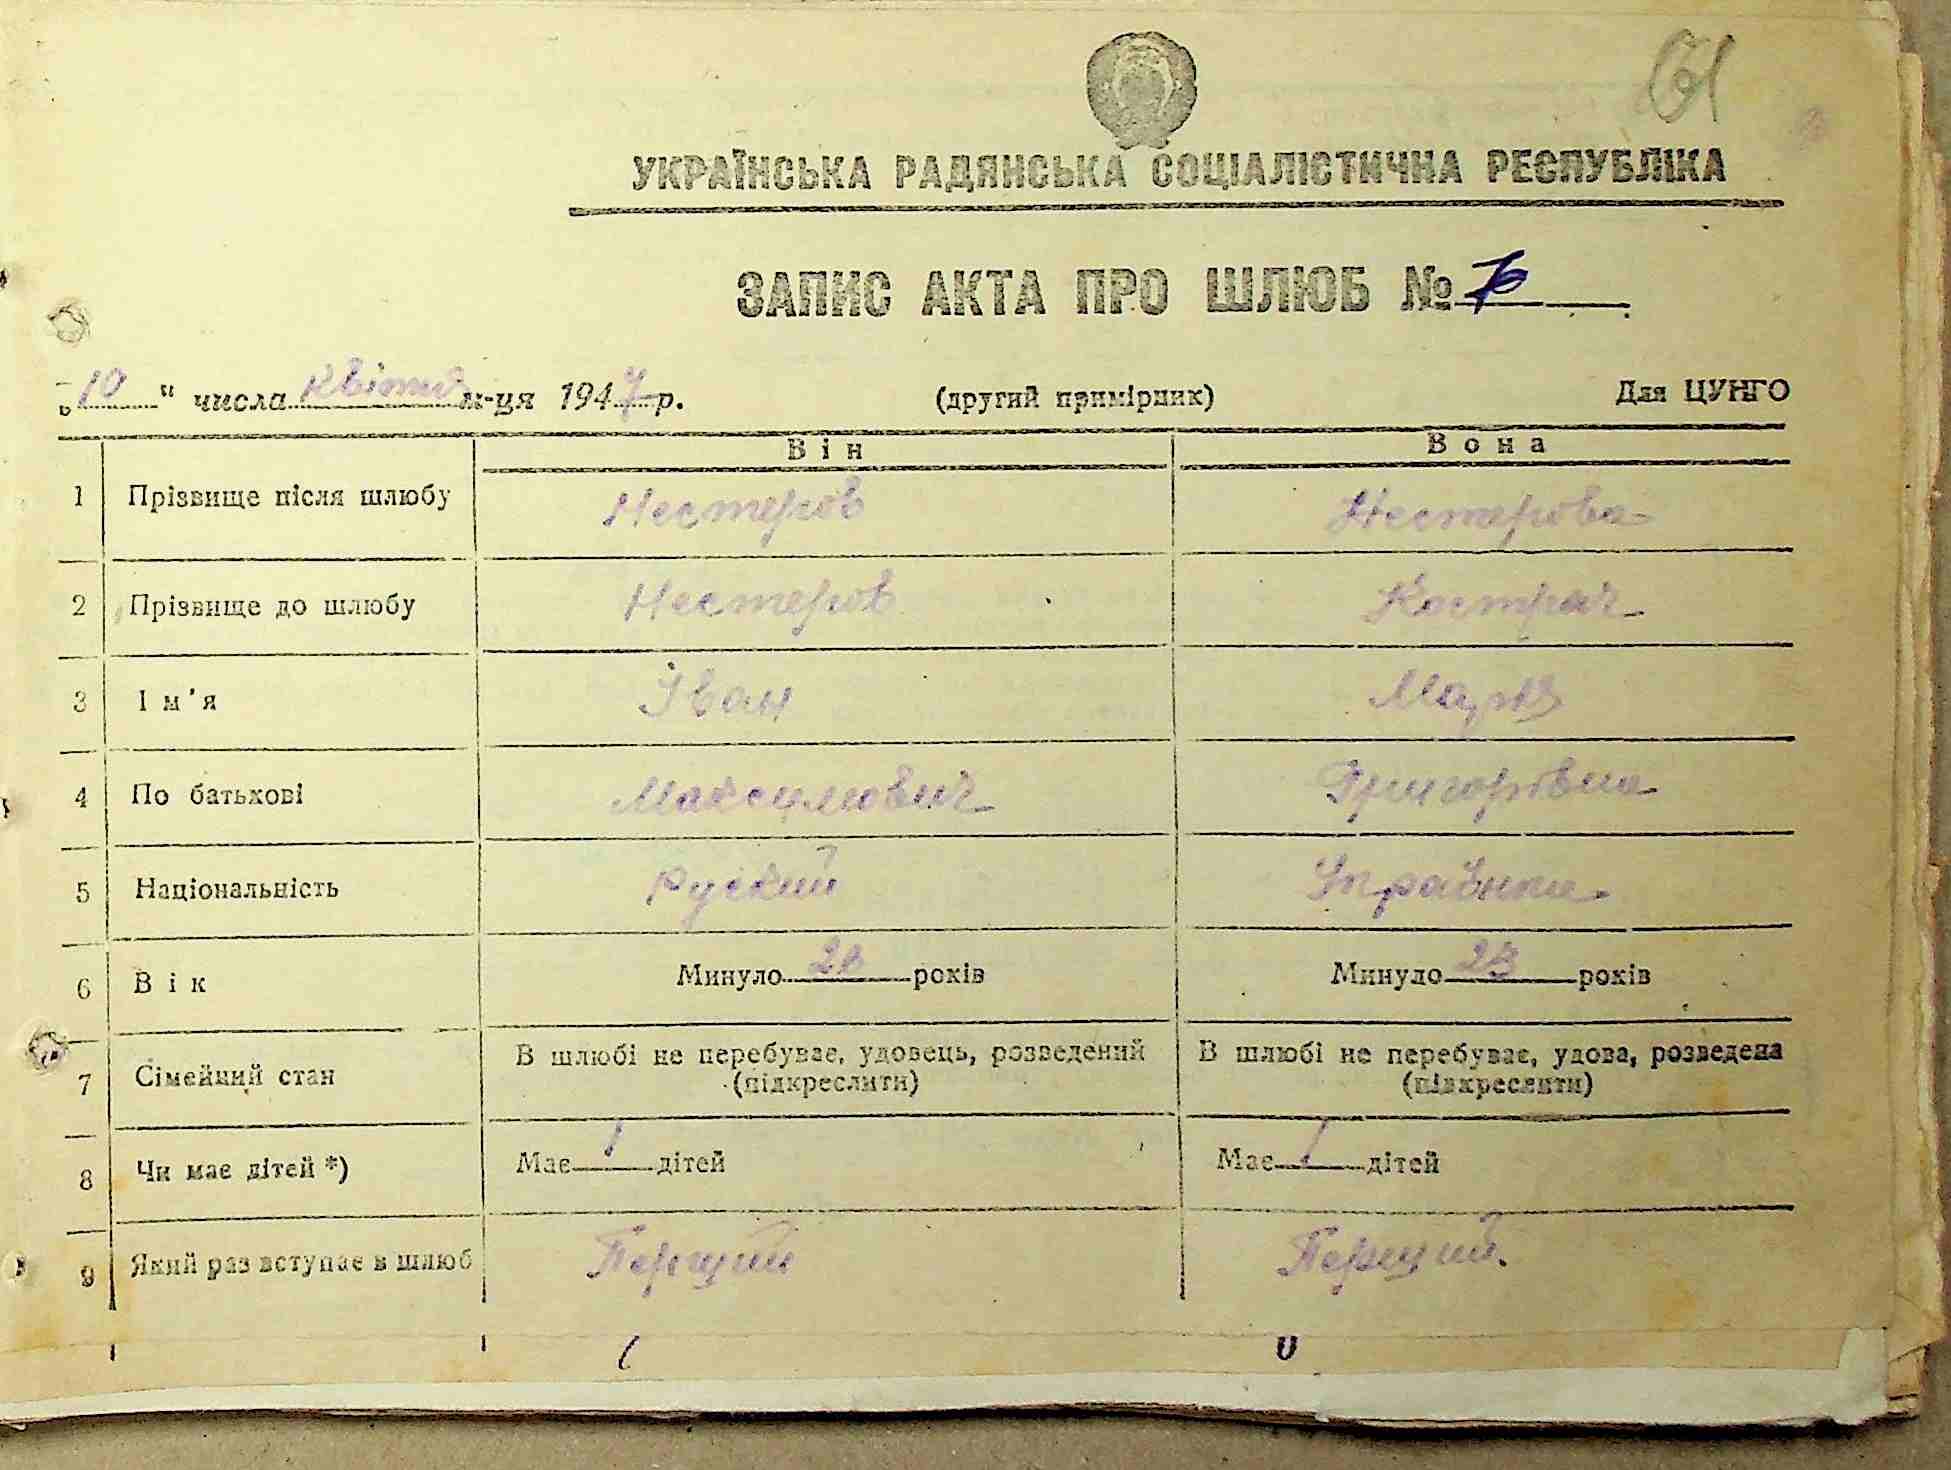 УКРАЇНСЬКА РАДЯНСЬКА СОЦІАЛІСТИЧНА РЕСПУБЛІКА
ЗАПИС АКТА ПРО ШЛЮБ №
„10“ числа квітня м-ця 1947 р. (другий примірник) Для ЦУНГО
Він Вона
1 Прізвище після шлюбу Нестеров Нестерова
2 Прізвище до шлюбу Нестеров Кострач
3 Ім'я Іван Марія
4 По батькові Максимович Григорівна
5 Національність Руский Українка
6 Вік Минуло років Минуло 23 років
7 Сімейний стан В шлюбі не перебуває, удовець, розведений В шлюбі не перебуває, удова, розведена
(підкреслити) (підкреслити)
8 Чи має дітей *) Має дітей Має дітей
9 Який раз вступає в шлюб Перший Перший.